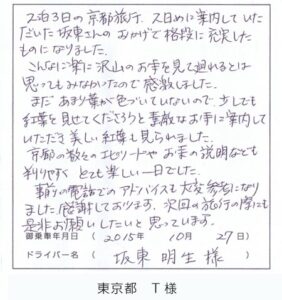 2泊3日の京都旅行、2日めに案内していた
だいた坂東さんのおかげで格段に充実した
ものになりました。
こんなに楽に沢山のお寺を見て廻れるとは
思ってもみなかったので感激しました。
まだあまり葉が色づいていないので、少しでも
紅葉を見せてくださろうと素敵なお寺に案内して
いただき美しい紅葉も見られました。
京都の数々のエピソードやお寺の説明なども
判りやすくとても楽しい一日でした。
事前の電話でのアドバイスも大変参考になり
ました。感謝しております。次回の旅行の際にも
是非お願いしたいと思っています。
御乗車年月日 ( 2015年 10月 27日 )
ドライバー名 ( 坂東 明生 様 )
東京都 T様